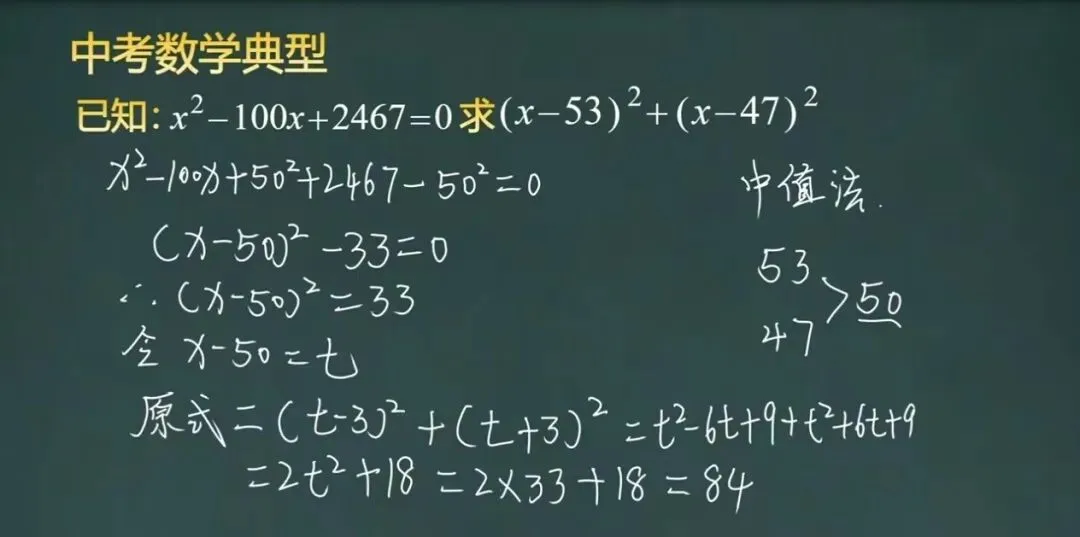 中考数学典型
已知: x²-100x+2467=0 求(x-53)²+(x-47)²
x²-100x+50²+2467-50²=0
(x-50)²-33=0
∴ (x-50)²=33
令 x-50=t
原式=(t-3)²+(t+3)²=t²-6t+9+t²+6t+9
=2t²+18=2×33+18=84
中值法.
53
47 > 50